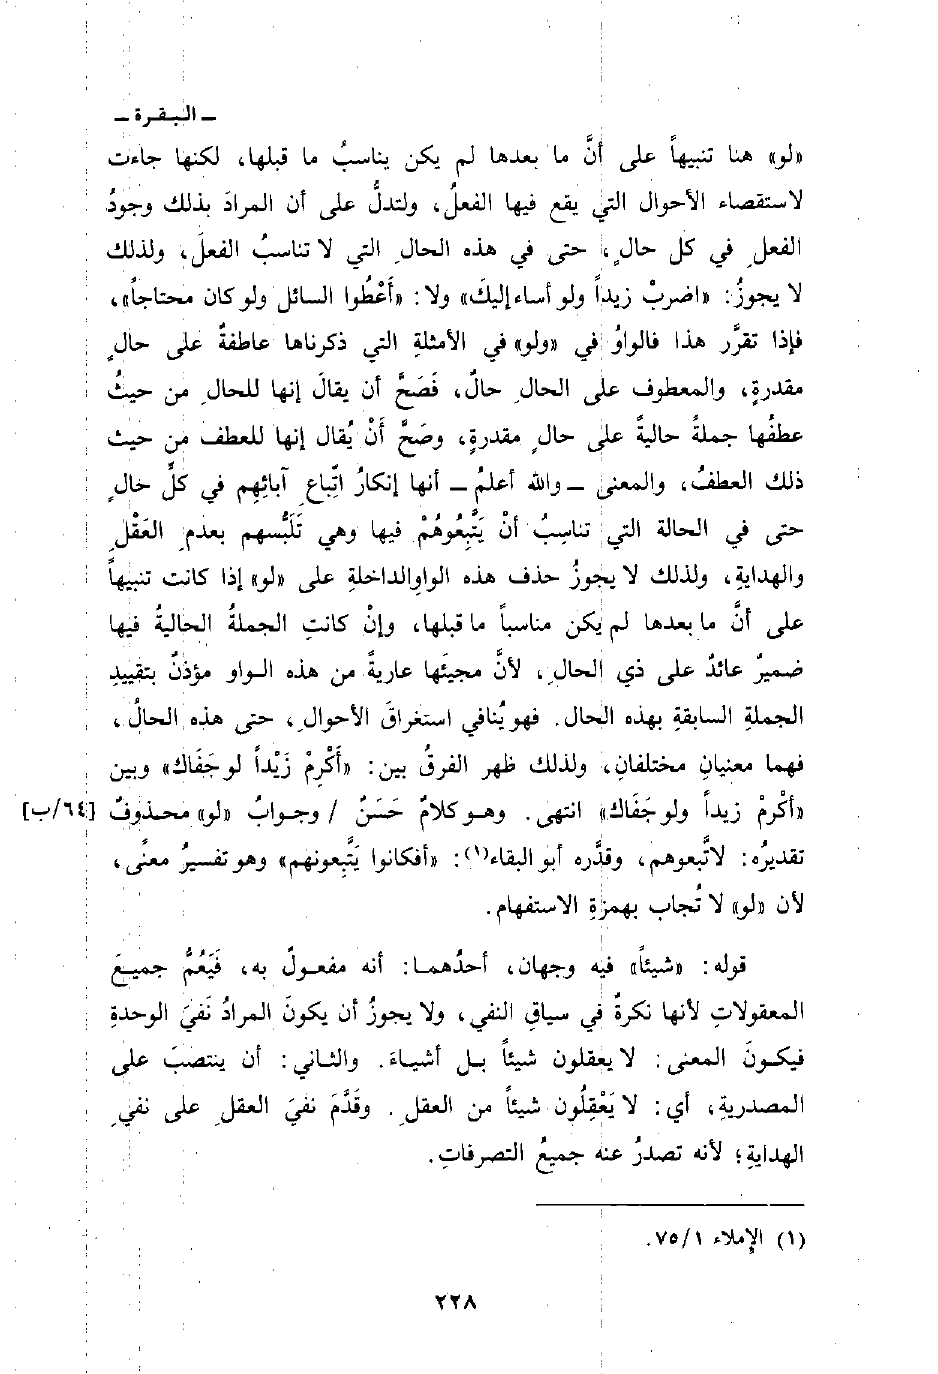 ـ البقرة ـ
«لو» هنا تنبيهاً على أنَّ ما بعدها لم يكن يناسبُ ما قبلها، لكنها جاءت
لاستقصاء الأحوال التي يقع فيها الفعلُ، ولتدلَّ على أن المرادَ بذلك وجودُ
الفعلِ في كل حالٍ، حتى في هذه الحالِ التي لا تناسبُ الفعلَ، ولذلك
لا يجوزُ: «اضربْ زيداً ولو أساء إليكَ» ولا: «أَعْطُوا السائل ولو كان محتاجاً»،
فإذا تقرَّر هذا فالواوُ في «ولو» في الأمثلةِ التي ذكرناها عاطفةٌ على حالٍ
مقدرةٍ، والمعطوف على الحالِ حالٌ، فَصَحَّ أن يقالَ إنها للحالِ من حيثُ
عطفُها جملةً حاليةً على حالٍ مقدرةٍ، وصَحَّ أَنْ يُقال إنها للعطف من حيث
ذلك العطفُ، والمعنى ـ والله أعلمُ ـ أنها إنكارُ اتِّباعِ آبائِهم في كلِّ حالٍ
حتى في الحالة التي تناسِبُ أنْ يَتَّبِعُوهُمْ فيها وهي تَلَبُّسهم بعدمِ العَقْلِ
والهدايةِ، ولذلك لا يجوزُ حذف هذه الواوالداخلةِ على «لو» إذا كانت تنبيهاً
على أنَّ ما بعدها لم يكن مناسباً ما قبلها، وإنْ كانتِ الجملةُ الحاليةُ فيها
ضميرٌ عائدٌ على ذي الحالِ، لأنَّ مجيئَها عاريةً من هذه الواو مؤذنٌ بتقييدِ
الجملةِ السابقةِ بهذه الحال. فهو يُنافي استغراقَ الأحوالِ، حتى هذه الحالُ،
فهما معنيانِ مختلفانِ، ولذلك ظهر الفرقُ بين: «أَكْرِمْ زَيْداً لو جَفَاك» وبين
«أكْرِمْ زيداً ولو جَفَاك» انتهى. وهو كلامٌ حَسَنٌ / وجوابُ «لو» محذوفٌ [٦٤/ب]
تقديرُه: لاتَّبعوهم، وقدَّره أبو البقاء(١): «أفكانوا يَتَّبِعونهم» وهو تفسيرُ معنًى،
لأن «لو» لا تُجاب بهمزةِ الاستفهام.
قوله: «شيئاً» فيه وجهان، أحدُهما: أنه مفعولٌ به، فَيَعُمُّ جميعَ
المعقولاتِ لأنها نكرةٌ في سياقِ النفي، ولا يجوزُ أن يكونَ المرادُ نَفيَ الوحدةِ
فيكونَ المعنى: لا يعقلون شيئاً بل أشياءَ. والثاني: أن ينتصبَ على
المصدرية، أي: لا يَعْقِلُون شيئاً من العقلِ. وقَدَّمَ نفيَ العقلِ على نفيِ
الهدايةِ؛ لأنه تصدرُ عنه جميعُ التصرفاتِ.
(١) الإملاء ٧٥/١.
٢٢٨